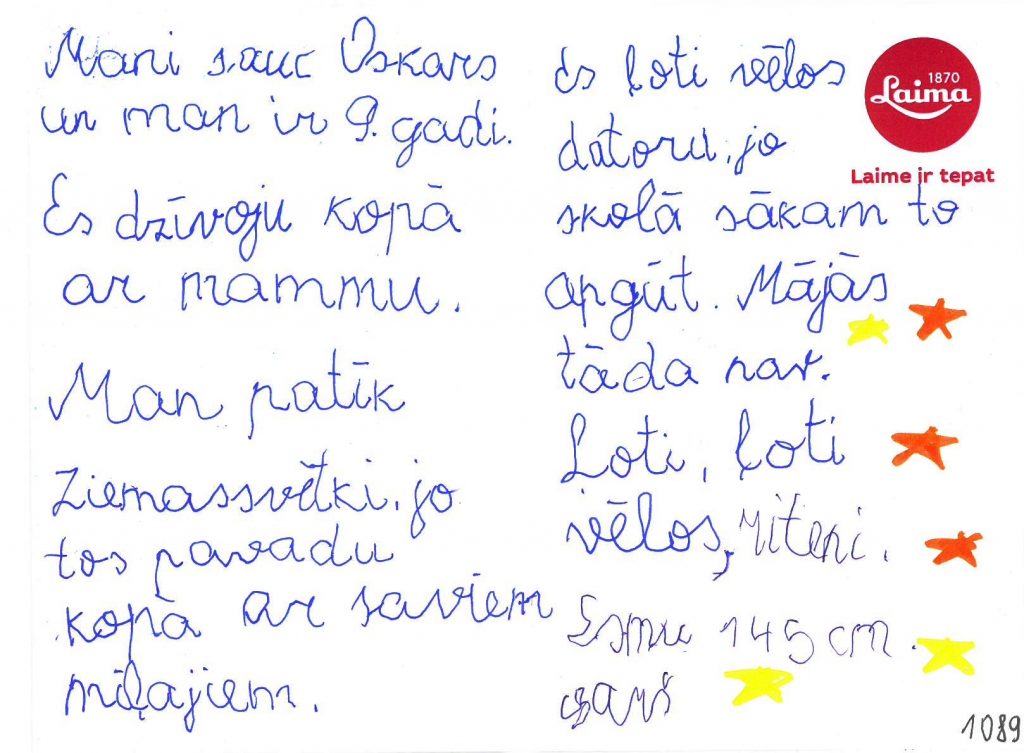 Mani sauc Oskars
un man ir 9. gadi.
Es dzīvoju kopā
ar mammu.
Man patīk
Ziemassvētki, jo
tos pavadu
kopā ar saviem
mīļajiem.
Es ļoti vēlos
datoru, jo
skolā sākam to
apgūt. Mājās
tāda nav.
Ļoti, ļoti
vēlos, riteni.
Esmu 145 cm.
garš
1870
Laima
Laime ir tepat
1089